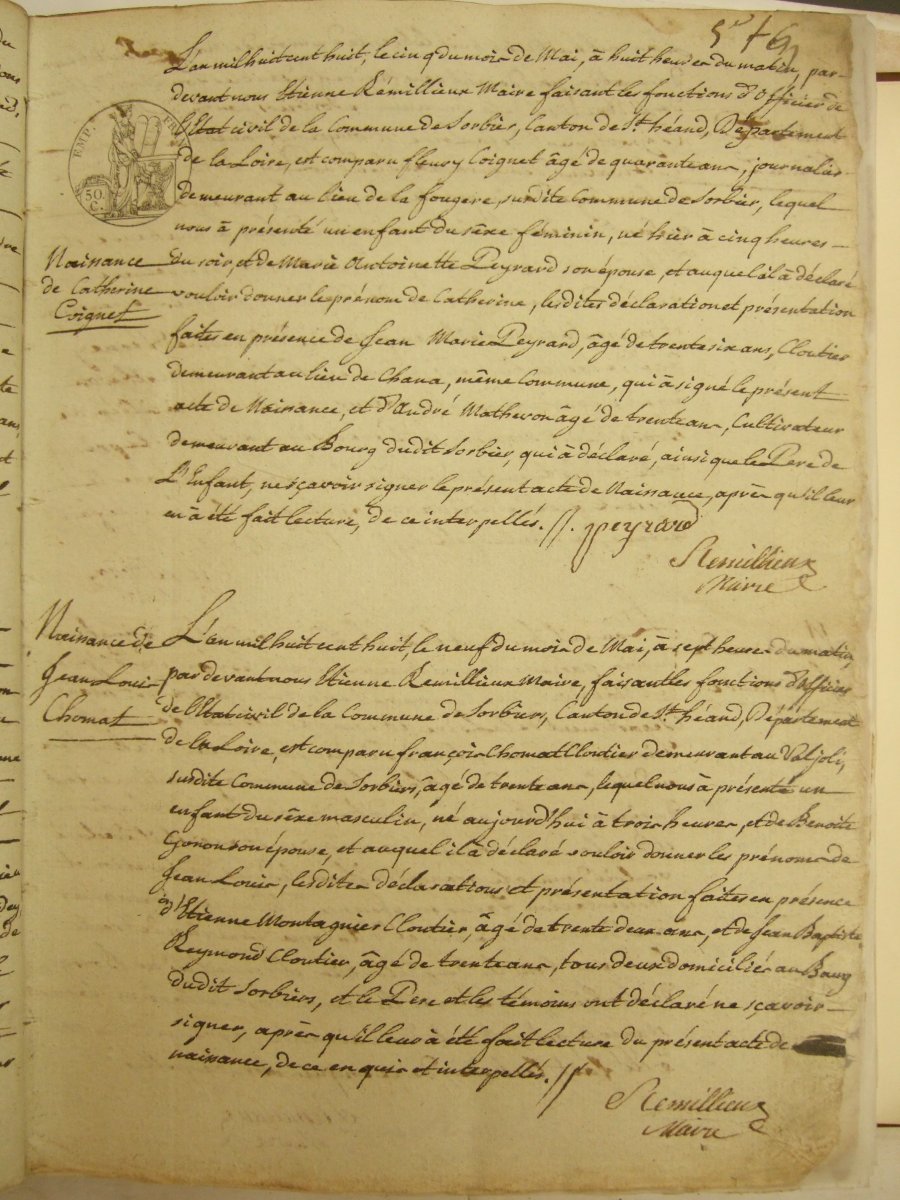 L'an mil huit cent huit, le cinq du mois de Mai, à huit heures du matin, par-
devant nous Etienne Rémillieux Maire faisant les fonctions d'Officier de
l'Etat civil de la Commune de Sorbier, Canton de St. héand, Département
de la Loire, est comparu fleury Coignet âgé de quarante ans, journalier
demeurant au lieu de la fougere, susdite Commune de Sorbier, lequel
nous à présenté un enfant du séxe féminin, né hier à cinq heures
du soir, et de Marie Antoinette Peyrard son épouse, et auquel il à déclaré
vouloir donner le prénom de Catherine, lesdites déclaration et présentation
faites en présence de Jean Marie Peyrard, âgé de trente six ans, Cloutier
demeurant au lieu de Chana, même Commune, qui à signé le présent
acte de Naissance, et d'André Mathevon âgé de trente ans, Cultivateur
demeurant au Bourg dudit Sorbier, qui à déclaré, ainsi que le Pere de
L'Enfant, ne sçavoir signer le présent acte de Naissance, après qu'il leur
en à été fait lecture, de ce interpellés. //. jpeyrard
Remillieux
Maire
EMP. FR
50.
C.
Naissance
de Catherine
Coignet
Naissance de
Jean Louis
Chomat
L'an mil huit cent huit, le neuf du mois de Mai, à sept heures du matin,
par devant nous Etienne Remillieux Maire, faisant les fonctions d'Officier
de l'Etat civil de la Commune de Sorbiers, Canton de St. héand, Département
de la Loire, est comparu françois Chomat Cloutier demeurant au Valjoli,
susdite Commune de Sorbiers, âgé de trente ans, lequel nous à présenté un
enfant du séxe masculin, né aujourd'hui à trois heures, et de Benoite
Gonon son épouse, et auquel il à déclaré vouloir donner les prénoms de
Jean Louis, lesdites déclarations et présentation faites en présence
d'Etienne Montagnier Cloutier, âgé de trente deux ans, et de Jean Baptiste
Reymond Cloutier, âgé de trente ans, tous deux domiciliés au Bourg
dudit Sorbiers, et le Pere et les témoins ont déclaré ne sçavoir
signer, après qu'il leur à été fait lecture du présent acte de
naissance, de ce enquis et interpellés. //
Remillieux
Maire